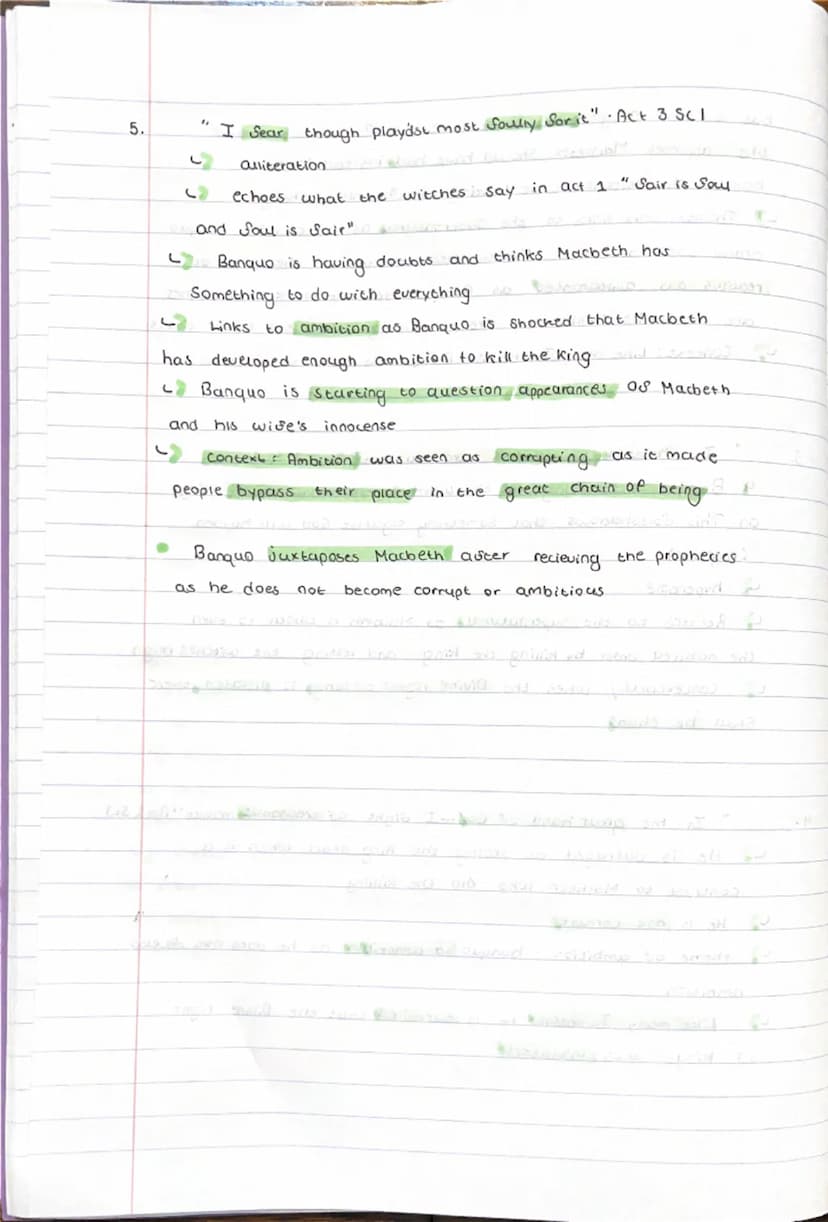 5. " I fear though playdst most foully for it" · Act 3 Sc 1
↳ alliteration
↳ echoes what the witches say in act 1 "fair is foul
and foul is fair"
↳ Banquo is having doubts and thinks Macbeth has
Something to do with everything
↳ Links to ambition as Banquo is shocked that Macbeth
has developed enough ambition to kill the king
↳ Banquo is starting to question appearances of Macbeth
and his wife's innocense
↳ Context: Ambition was seen as corrupting as it made
people bypass their place in the great chain of being
• Banquo juxtaposes Macbeth after recieving the prophecies
as he does not become corrupt or ambitious